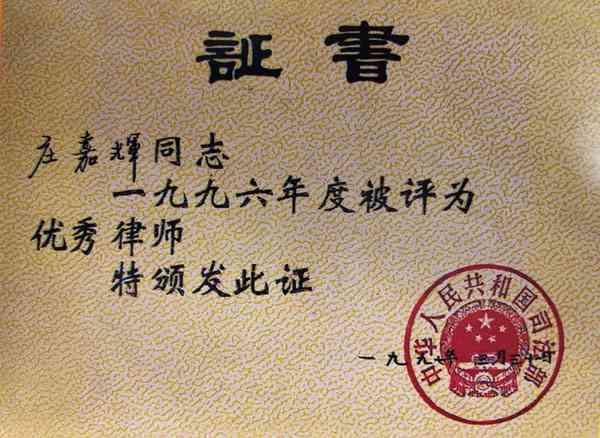 証書
庄嘉輝同志
一九九六年度被评为
优秀律师
特颁发此证
一九九七年三月三十日
中华人民共和国司法部